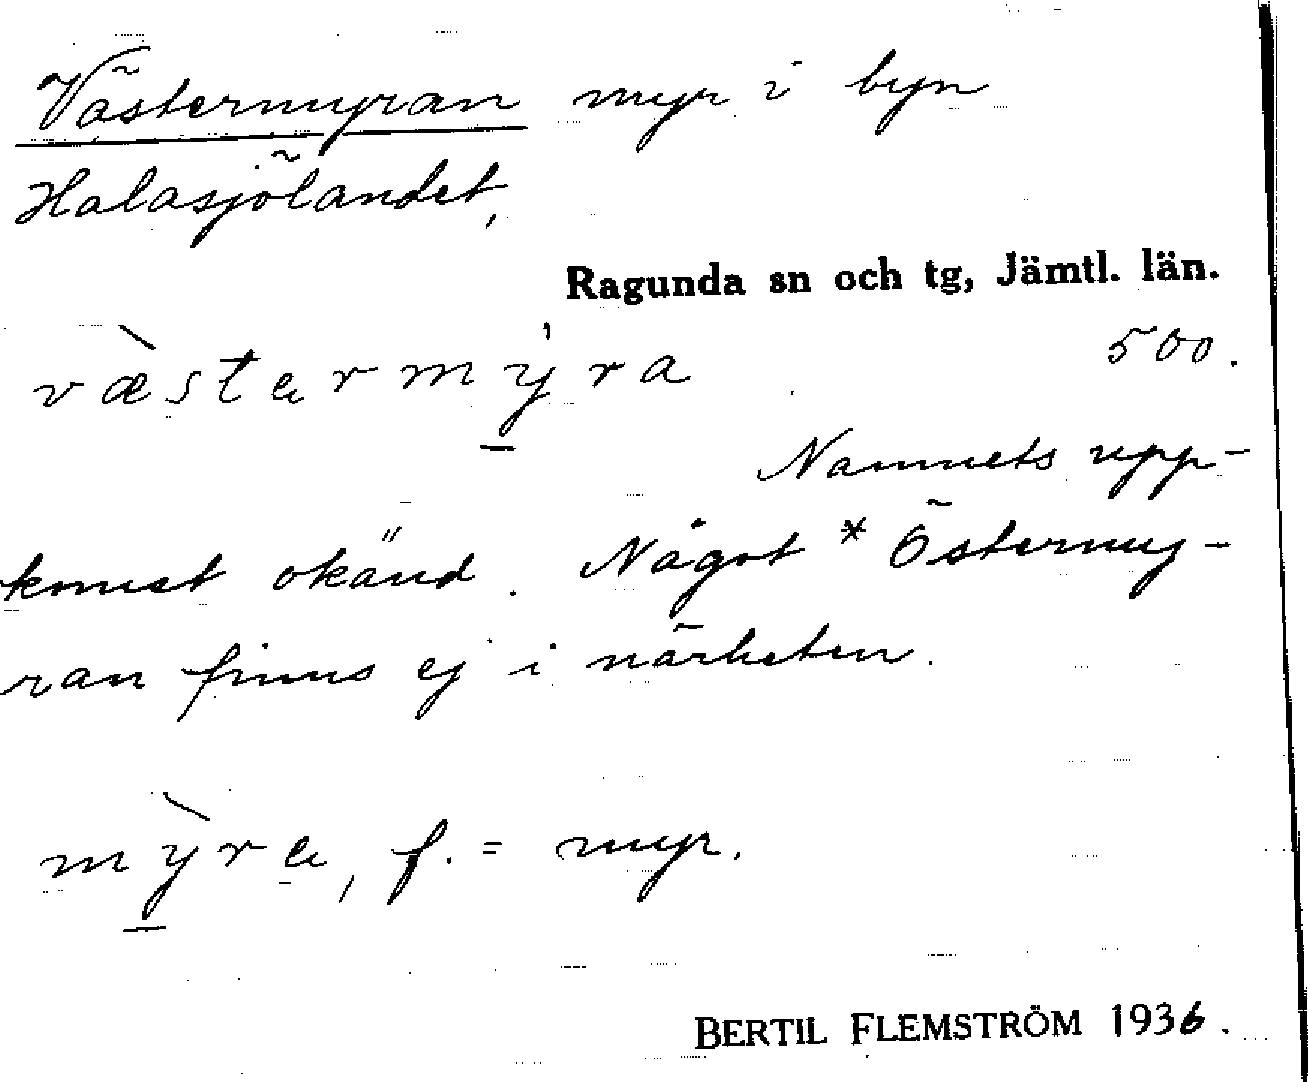 Västermyran myr i byn
Halasjölandet,
Ragunda sn och tg, Jämtl. län.
væ̀stαrmy̱̍ra 500.
Namnets upp-
komst okänd. Något * Östermy-
ran finns ej i närheten.
mỳ̱rα, f. = myr.
BERTIL FLEMSTRÖM 1936.